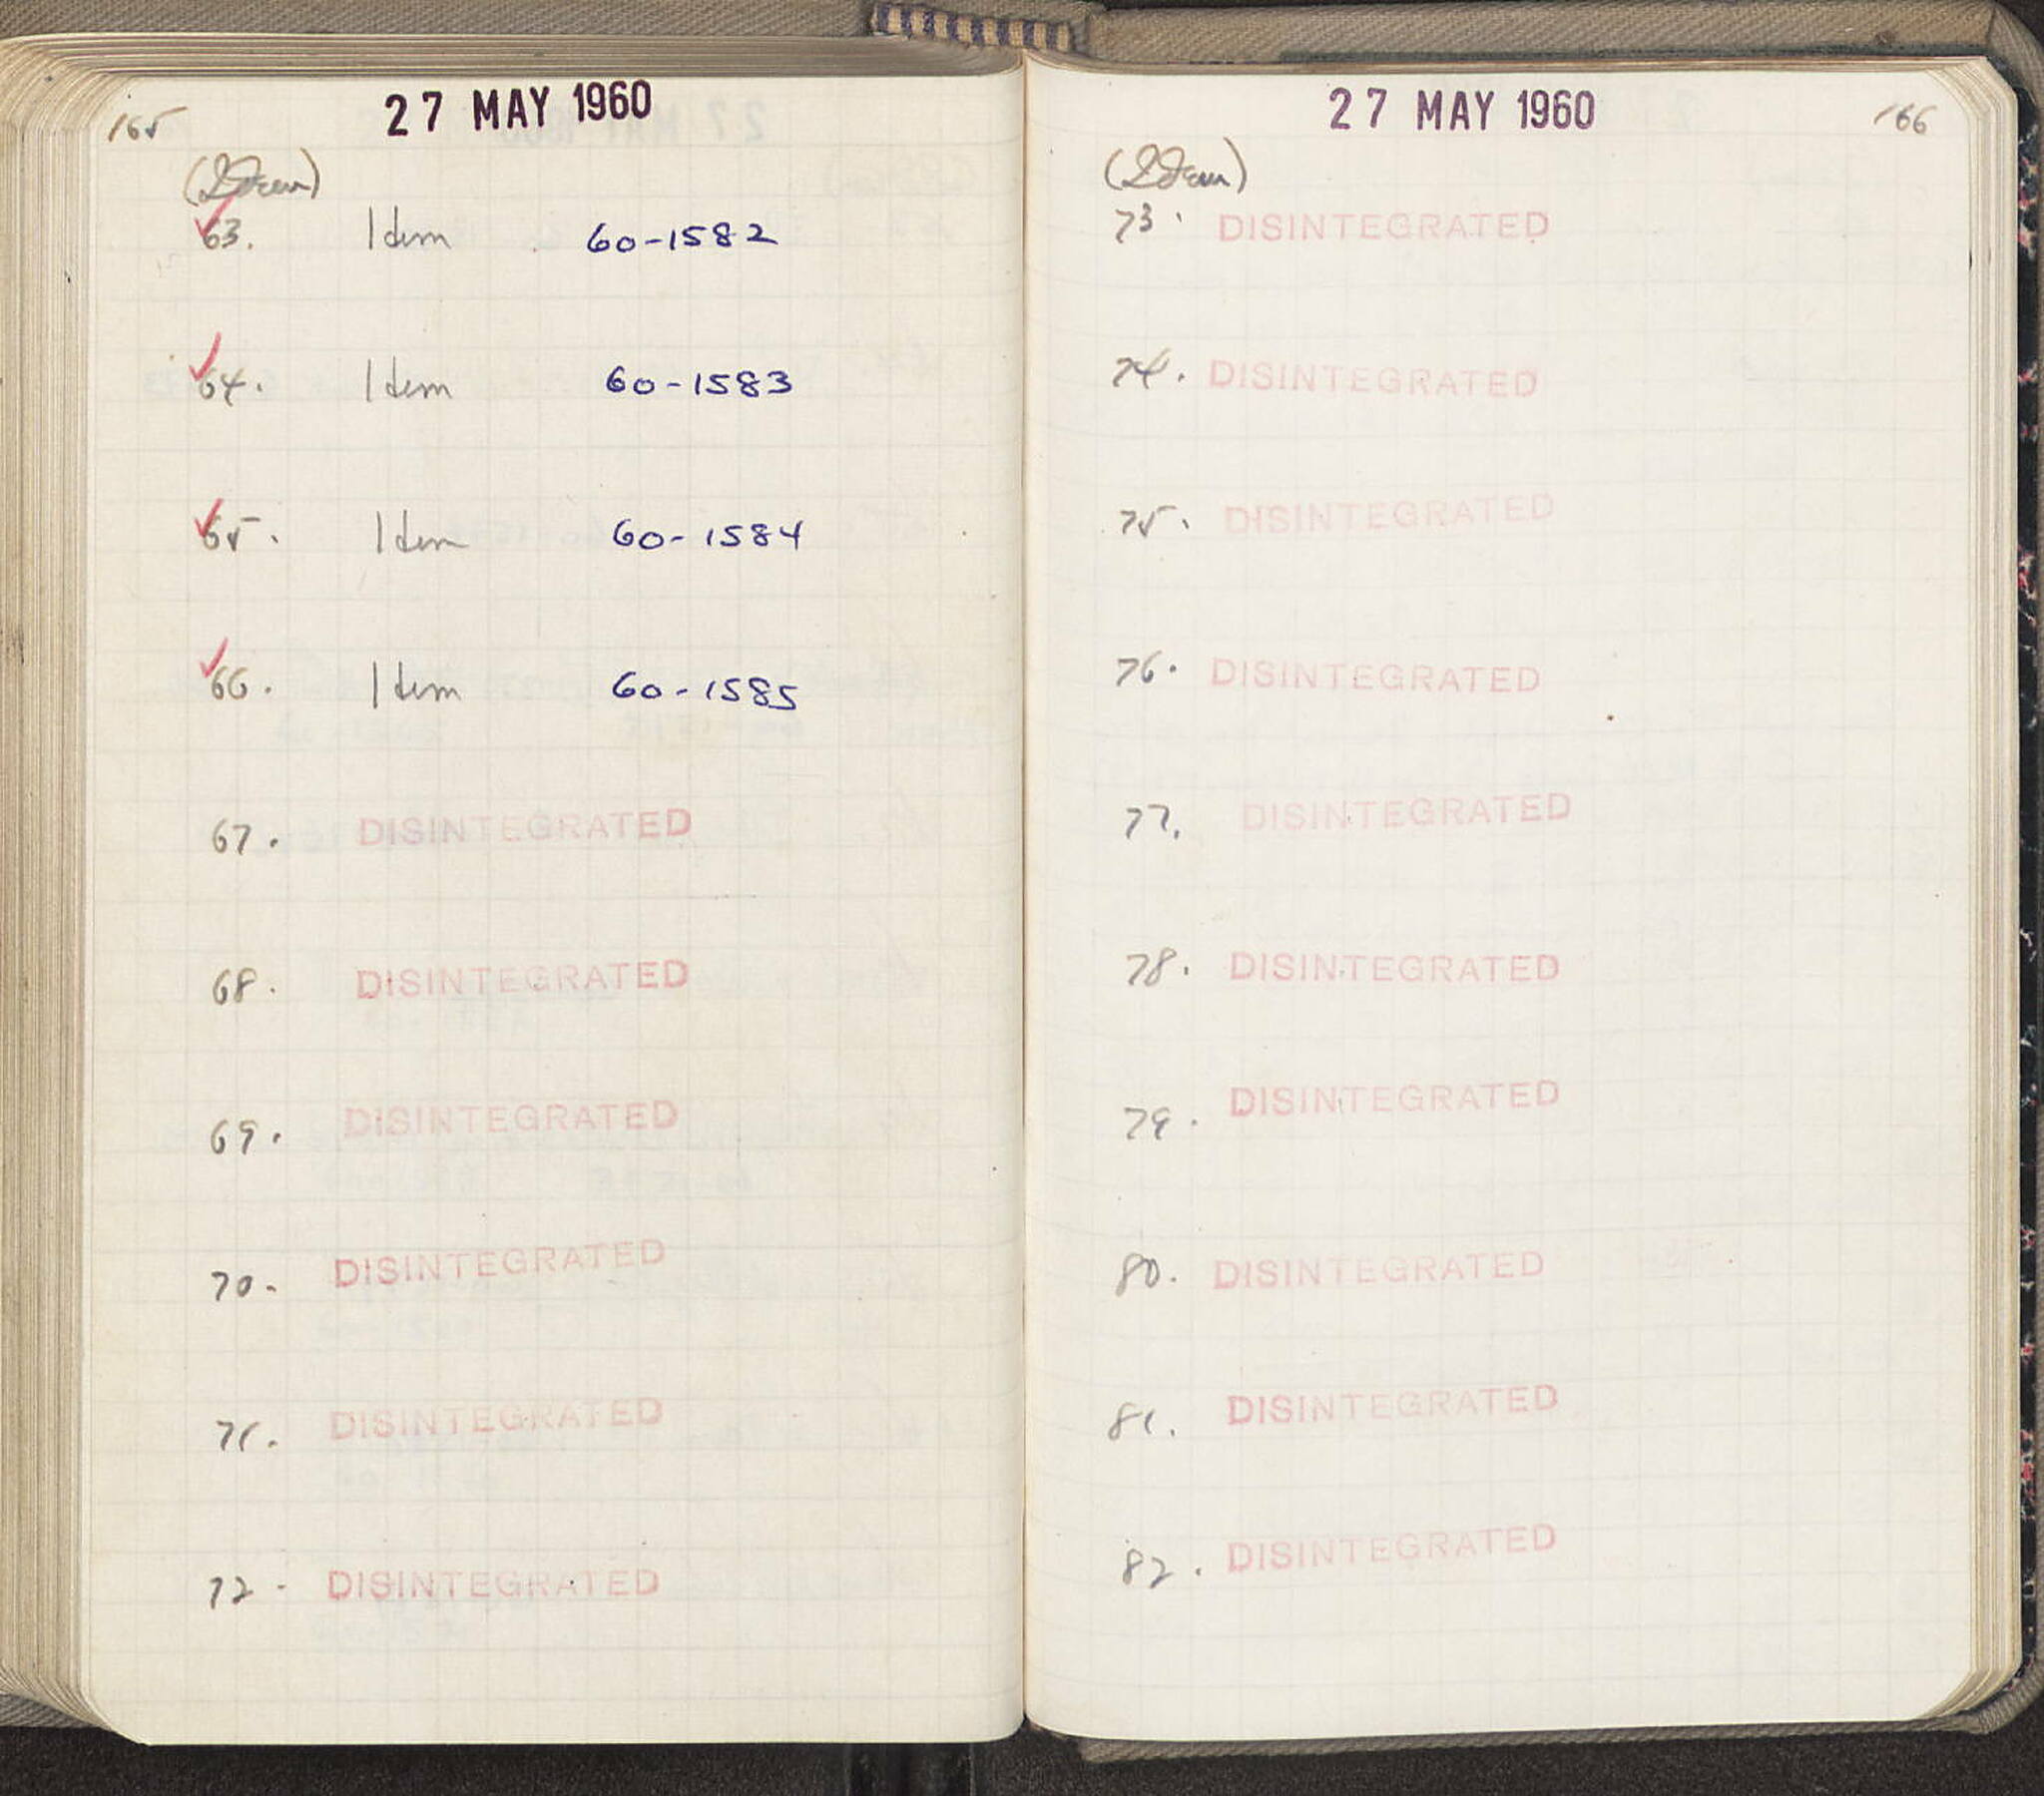 165
27 MAY 1960
(Idem)
63. Idem 60-1582
64. Idem 60-1583
65. Idem 60-1584
66. Idem 60-1585
67. DISINTEGRATED
68. DISINTEGRATED
69. DISINTEGRATED
70. DISINTEGRATED
71. DISINTEGRATED
72. DISINTEGRATED
27 MAY 1960
166
(Idem)
73. DISINTEGRATED
74. DISINTEGRATED
75. DISINTEGRATED
76. DISINTEGRATED
77. DISINTEGRATED
78. DISINTEGRATED
79. DISINTEGRATED
80. DISINTEGRATED
81. DISINTEGRATED
82. DISINTEGRATED